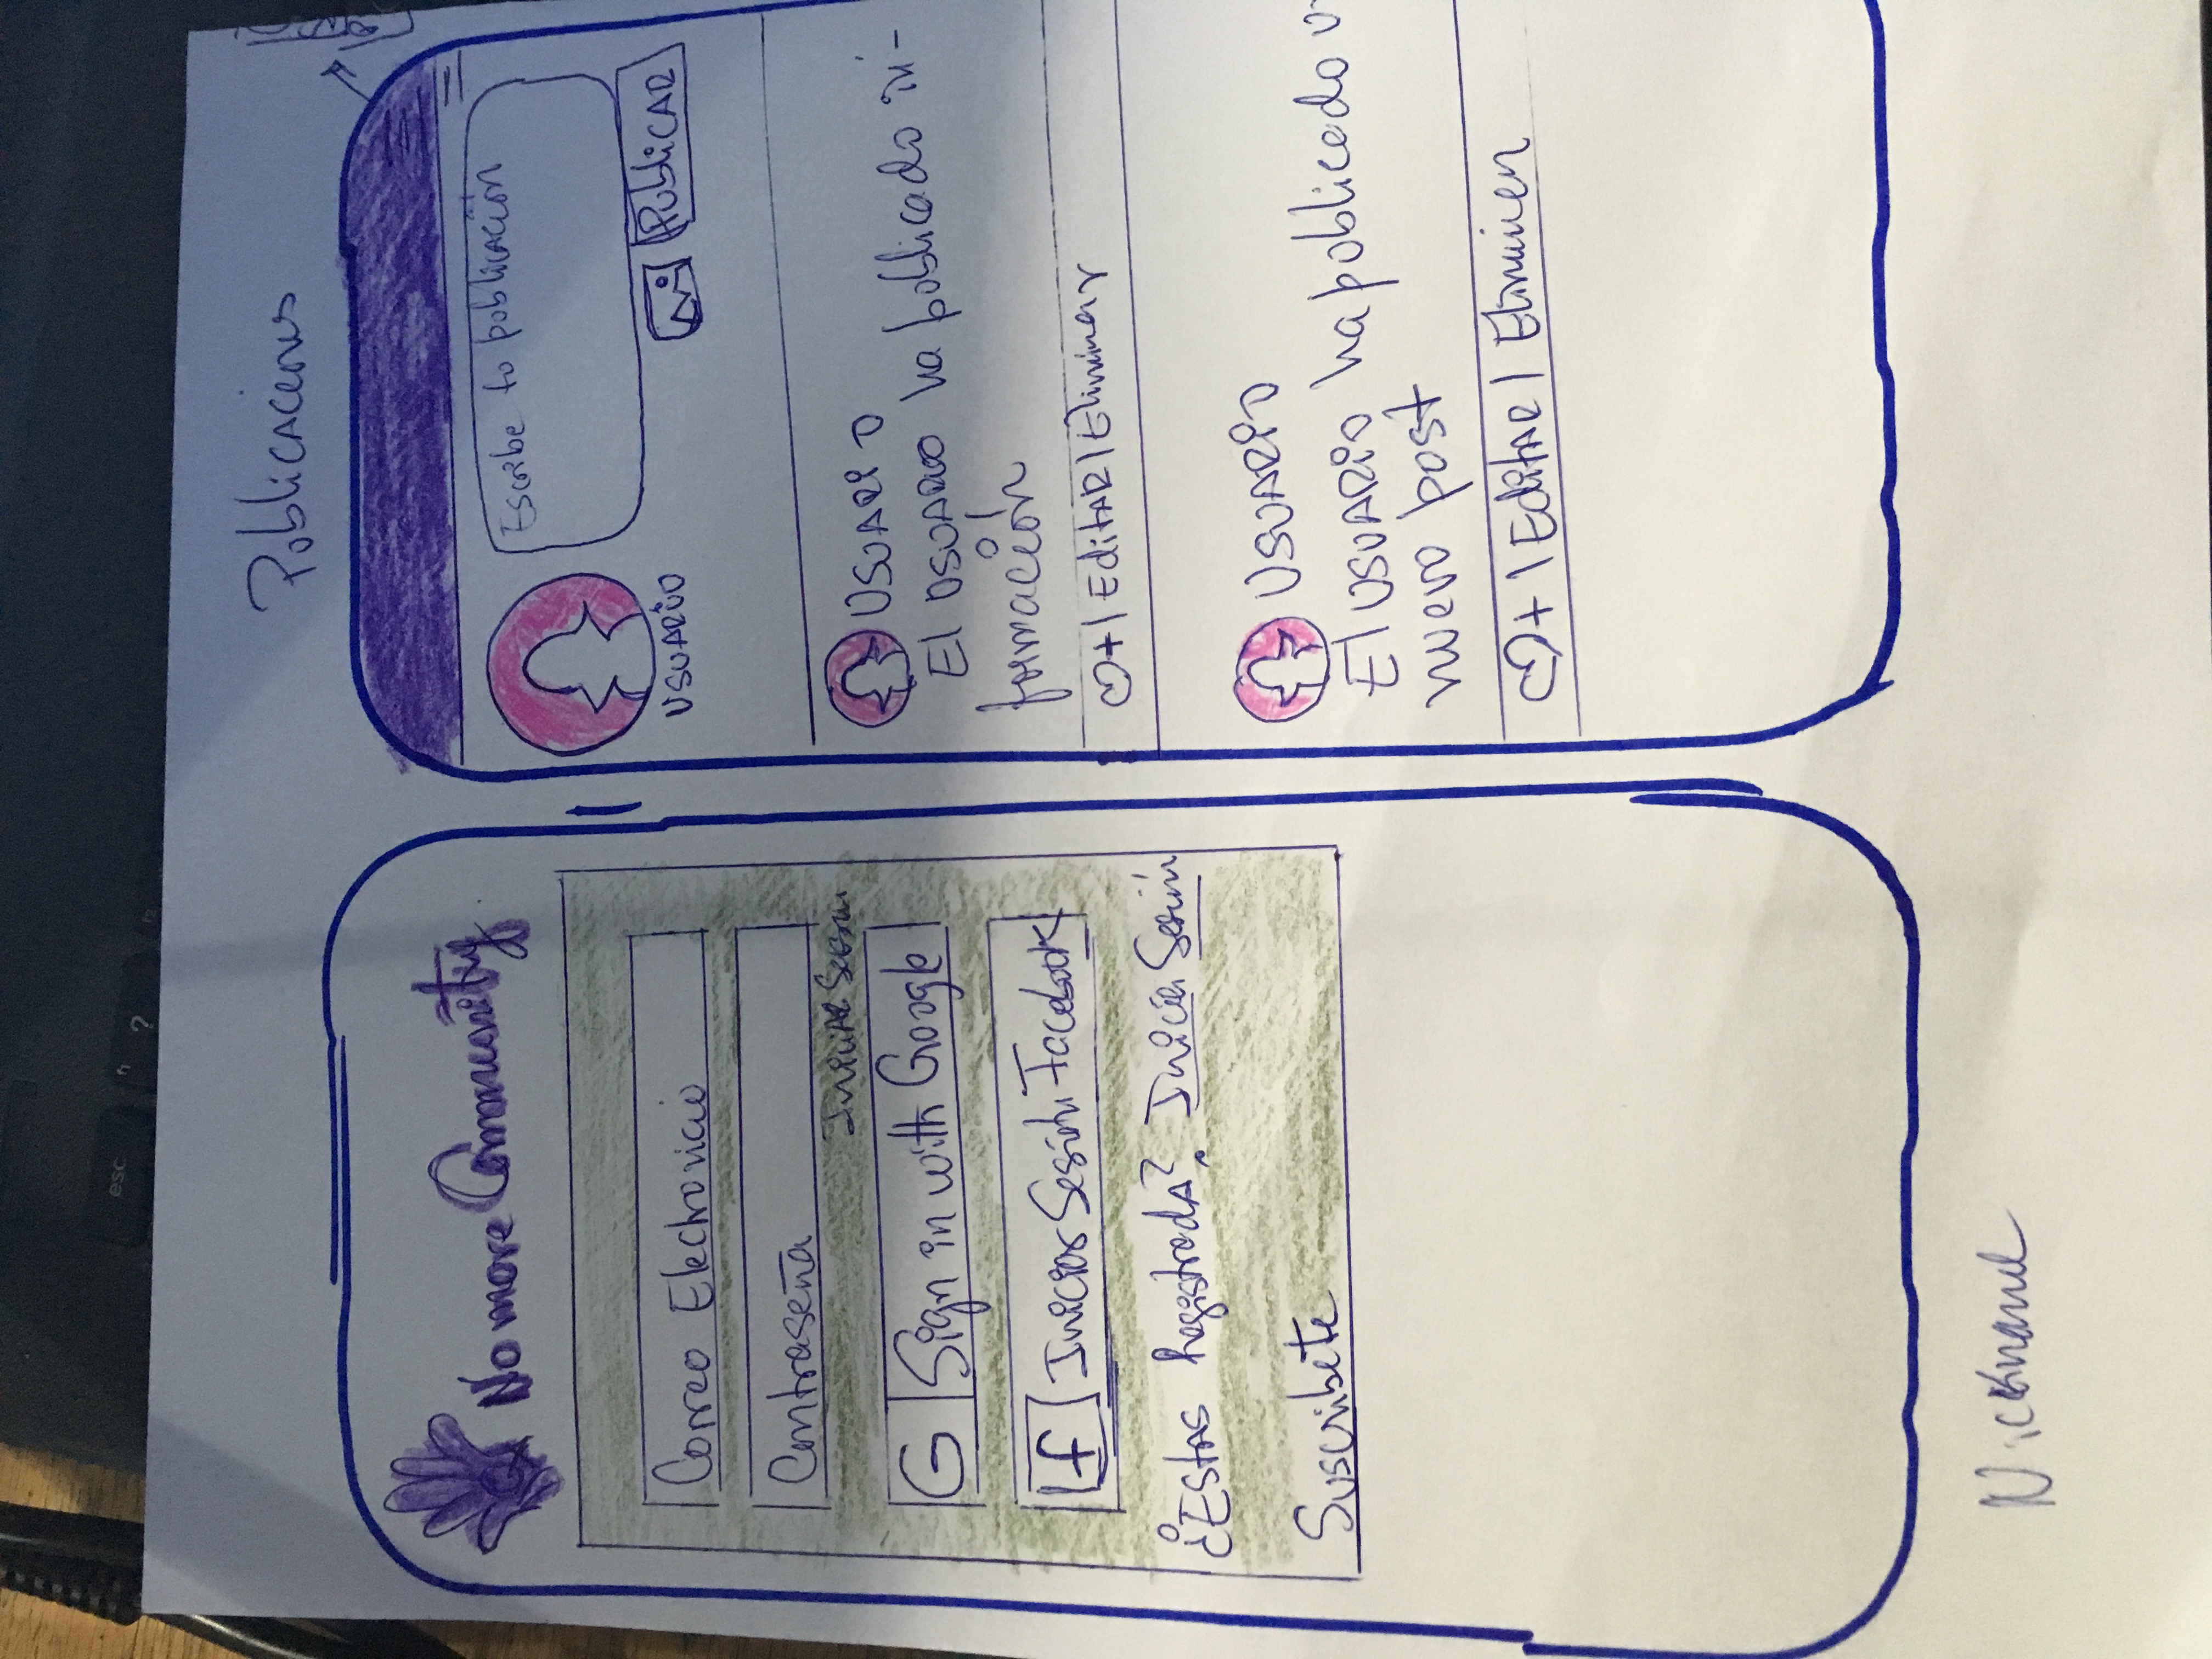 esc
?
Publicaciones
No more Community
Correo Electronico
Contraseña
Iniciar Sesion
G Sign in with Google
f Iniciar Sesión Facebook
¿Estas Registrada? Inicia Sesión
Suscribete
Nickname
Escribe tu publicación
USUARIO
PUBLICAR
USUARIO
El USUARIO ha publicado in-
formación
+ | EditAR | Eliminar
USUARIO
El USUARIO ha publicado
nuevo post
+ | EditAR | Eliminar